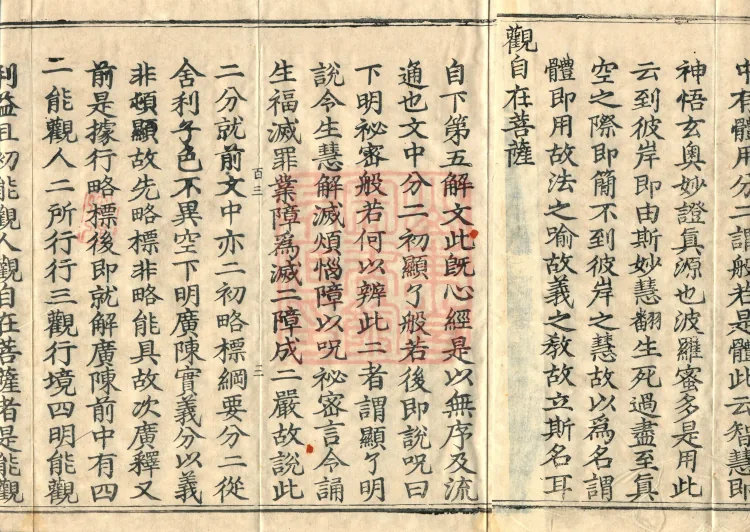 中有體用分二謂般若是體此云智慧即
神悟玄奧妙證真源也波羅蜜多是用此
云到彼岸即由斯妙慧翻生死過盡至真
空之際即簡不到彼岸之慧故以為名謂
體即用故法之喻故義之教故立斯名耳
觀自在菩薩
自下第五解文此既心經是以無序及流
通也文中分二初顯了般若後即說呪曰
下明祕密般若何以辨此二者謂顯了明
說令生慧解滅煩惱障以呪祕密言令誦
生福滅罪業障為滅二障成二嚴故說此
百三 三
二分就前文中亦二初略標綱要分二從
舍利子色不異空下明廣陳實義分以義
非頓顯故先略標非略能具故次廣釋又
前是據行略標後即就解廣陳前中有四
二能觀人二所行行三觀行境四明能觀
利益且初能觀人觀自在菩薩者是能觀